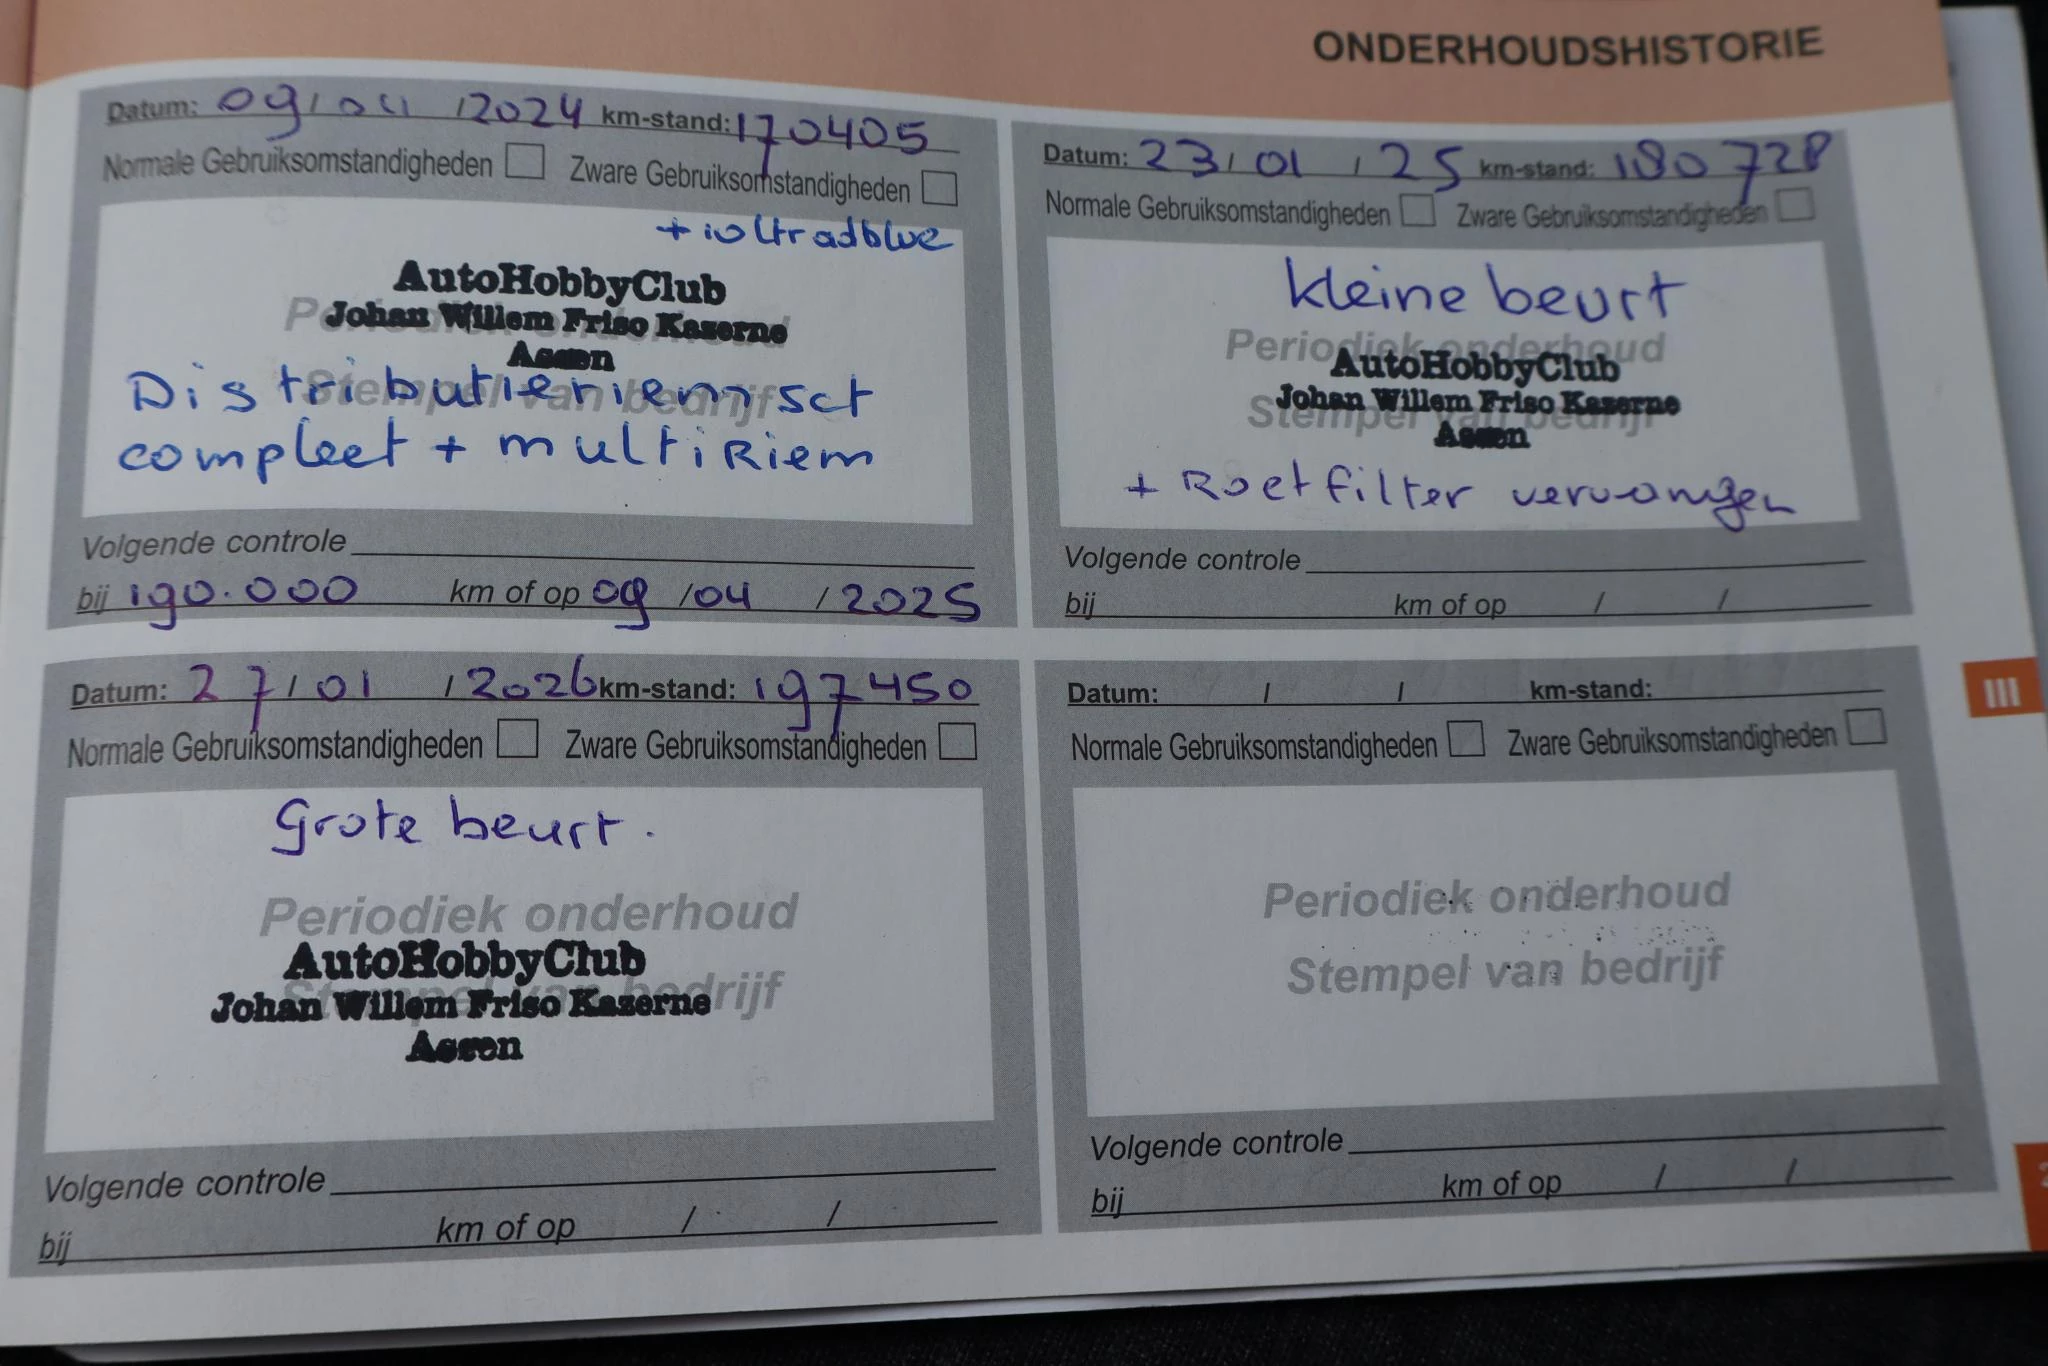 ONDERHOUDSHISTORIE
Datum: 09/04/2024 km-stand: 170405
Normale Gebruiksomstandigheden Zware Gebruiksomstandigheden
+ 10 ltr adblue
AutoHobbyClub
Johan Willem Friso Kazerne
Assen
Periodiek onderhoud
Stempel van bedrijf
Distributieriemset
compleet + multiRiem
Volgende controle
bij 190.000 km of op 09/04/2025
Datum: 23/01/25 km-stand: 180728
Normale Gebruiksomstandigheden Zware Gebruiksomstandigheden
kleine beurt
Periodiek onderhoud
AutoHobbyClub
Johan Willem Friso Kazerne
Stempel van bedrijf
Assen
+ Roetfilter vervangen
Volgende controle
bij km of op / /
Datum: 27/01/2026 km-stand: 197450
Normale Gebruiksomstandigheden Zware Gebruiksomstandigheden
Grote beurt.
Periodiek onderhoud
AutoHobbyClub
Stempel van bedrijf
Johan Willem Friso Kazerne
Assen
Volgende controle
bij km of op / /
Datum: / / km-stand:
Normale Gebruiksomstandigheden Zware Gebruiksomstandigheden
Periodiek onderhoud
Stempel van bedrijf
Volgende controle
bij km of op / /
III